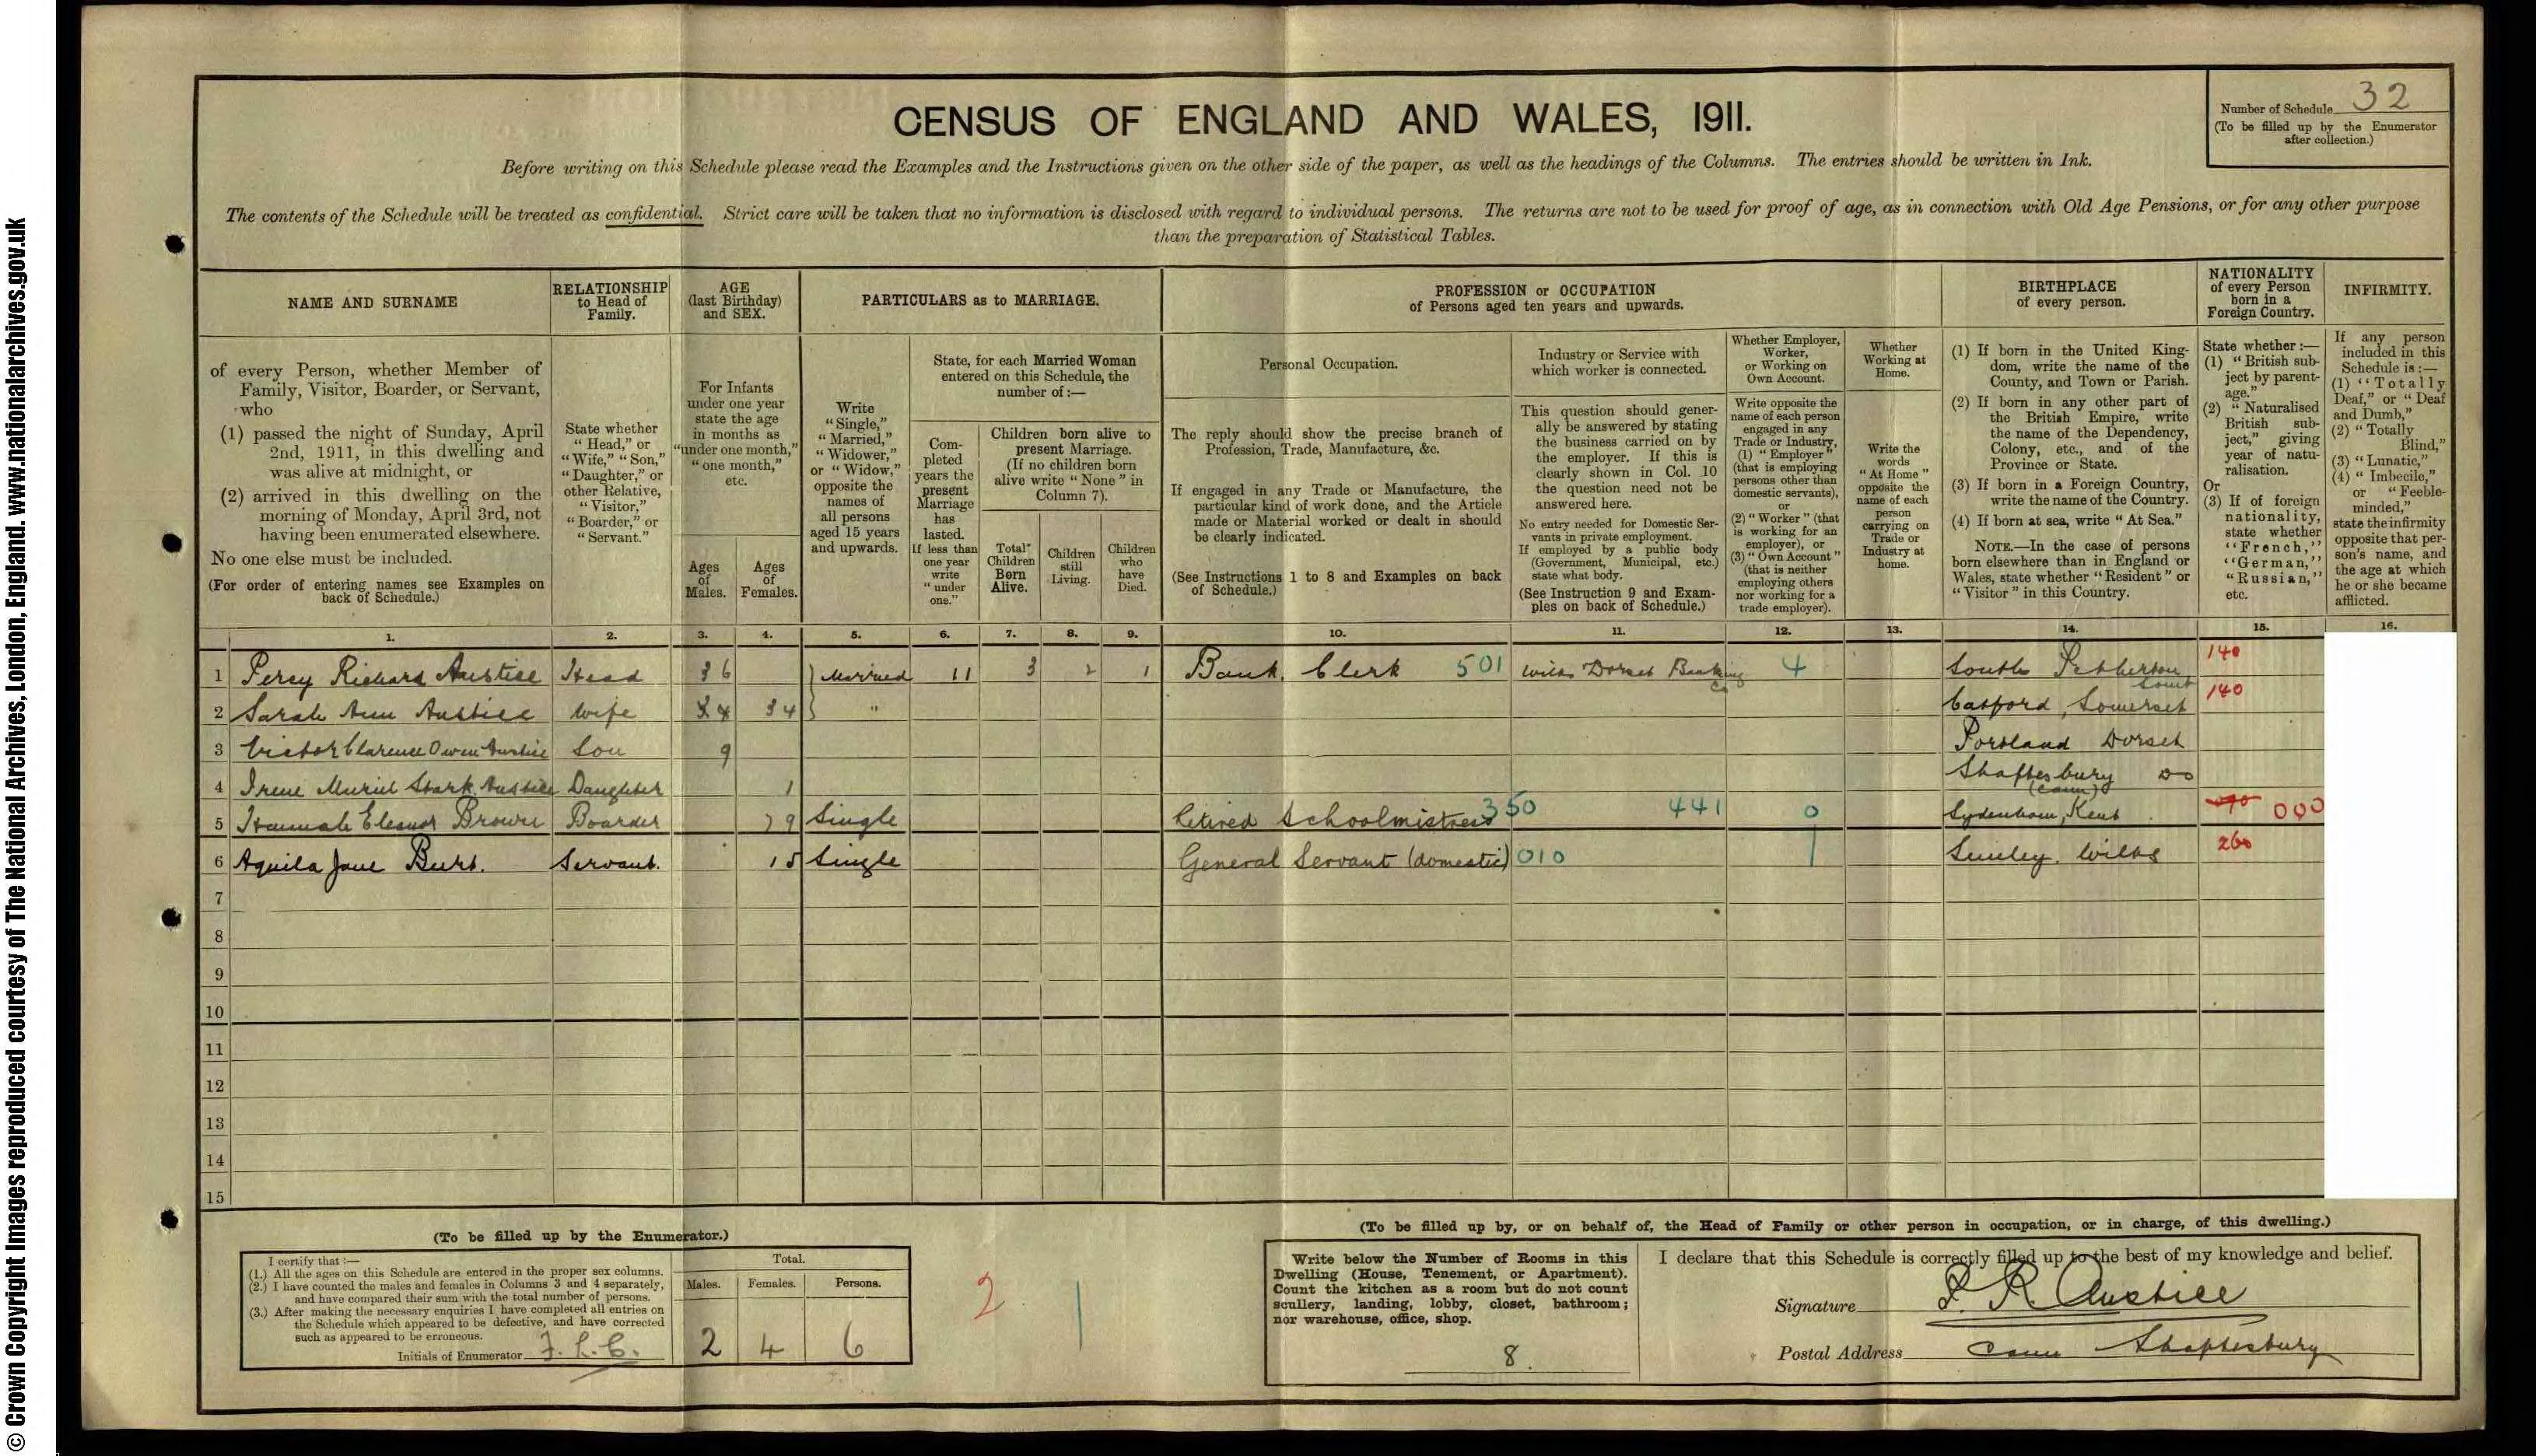 © Crown Copyright Images reproduced courtesy of The National Archives, London, England. www.nationalarchives.gov.uk
CENSUS OF ENGLAND AND WALES, 1911.
Number of Schedule 32
(To be filled up by the Enumerator
after collection.)
Before writing on this Schedule please read the Examples and the Instructions given on the other side of the paper, as well as the headings of the Columns. The entries should be written in Ink.
The contents of the Schedule will be treated as confidential. Strict care will be taken that no information is disclosed with regard to individual persons. The returns are not to be used for proof of age, as in connection with Old Age Pensions, or for any other purpose
than the preparation of Statistical Tables.
NAME AND SURNAME
of every Person, whether Member of
Family, Visitor, Boarder, or Servant,
who
(1) passed the night of Sunday, April
2nd, 1911, in this dwelling and
was alive at midnight, or
(2) arrived in this dwelling on the
morning of Monday, April 3rd, not
having been enumerated elsewhere.
No one else must be included.
(For order of entering names see Examples on
back of Schedule.)
RELATIONSHIP
to Head of
Family.
State whether
"Head," or
"Wife," "Son,"
"Daughter," or
other Relative,
"Visitor,"
"Boarder," or
"Servant."
AGE
(last Birthday)
and SEX.
For Infants
under one year
state the age
in months as
"under one month,"
"one month,"
etc.
Ages
of
Males.
Ages
of
Females.
PARTICULARS as to MARRIAGE.
Write
"Single,"
"Married,"
"Widower,"
or "Widow,"
opposite the
names of
all persons
aged 15 years
and upwards.
State, for each Married Woman
entered on this Schedule, the
number of:—
Com-
pleted
years the
present
Marriage
has
lasted.
If less than
one year
write
"under
one."
Children born alive to
present Marriage.
(If no children born
alive write "None" in
Column 7).
Total
Children
Born
Alive.
Children
still
Living.
Children
who
have
Died.
PROFESSION or OCCUPATION
of Persons aged ten years and upwards.
Personal Occupation.
The reply should show the precise branch of
Profession, Trade, Manufacture, &c.
If engaged in any Trade or Manufacture, the
particular kind of work done, and the Article
made or Material worked or dealt in should
be clearly indicated.
(See Instructions 1 to 8 and Examples on back
of Schedule.)
Industry or Service with
which worker is connected.
This question should gener-
ally be answered by stating
the business carried on by
the employer. If this is
clearly shown in Col. 10
the question need not be
answered here.
No entry needed for Domestic Ser-
vants in private employment.
If employed by a public body
(Government, Municipal, etc.)
state what body.
(See Instruction 9 and Exam-
ples on back of Schedule.)
Whether Employer,
Worker,
or Working on
Own Account.
Write opposite the
name of each person
engaged in any
Trade or Industry,
(1) "Employer"
(that is employing
persons other than
domestic servants),
or
(2) "Worker" (that
is working for an
employer), or
(3) "Own Account"
(that is neither
employing others
nor working for a
trade employer).
Whether
Working at
Home.
Write the
words
"At Home"
opposite the
name of each
person
carrying on
Trade or
Industry at
home.
BIRTHPLACE
of every person.
(1) If born in the United King-
dom, write the name of the
County, and Town or Parish.
(2) If born in any other part of
the British Empire, write
the name of the Dependency,
Colony, etc., and of the
Province or State.
(3) If born in a Foreign Country,
write the name of the Country.
(4) If born at sea, write "At Sea."
NOTE.—In the case of persons
born elsewhere than in England or
Wales, state whether "Resident" or
"Visitor" in this Country.
NATIONALITY
of every Person
born in a
Foreign Country.
State whether:—
(1) "British sub-
ject by parent-
age."
(2) "Naturalised
British sub-
ject," giving
year of natu-
ralisation.
Or
(3) If of foreign
nationality,
state whether
"French,"
"German,"
"Russian,"
etc.
INFIRMITY.
If any person
included in this
Schedule is:—
(1) "Totally
Deaf," or "Deaf
and Dumb,"
(2) "Totally
Blind,"
(3) "Lunatic,"
(4) "Imbecile,"
or "Feeble-
minded,"
state the infirmity
opposite that per-
son's name, and
the age at which
he or she became
afflicted.
1. 2. 3. 4. 5. 6. 7. 8. 9. 10. 11. 12. 13. 14. 15. 16.
1 Percy Richard Austice Head 36 Married 11 3 2 1 Bank Clerk 501 Wilts Dorset Banking Co 4 South Petherton Somt 140
2 Sarah Ann Austice Wife 34 " Catford, Somerset 140
3 Victor Clarence Owen Austice Son 9 Portland Dorset
4 Irene Muriel Stark Austice Daughter 1 Shaftesbury Do (Cann)
5 Hannah Eleanor Brown Boarder 79 Single Retired Schoolmistress 350 441 0 Sydenham, Kent 090 000
6 Aquila Jane Burt. Servant. 15 Single General Servant (domestic) 010 1 Semley. Wilts 260
7
8
9
10
11
12
13
14
15
(To be filled up by the Enumerator.)
I certify that:—
(1.) All the ages on this Schedule are entered in the proper sex columns.
(2.) I have counted the males and females in Columns 3 and 4 separately,
and have compared their sum with the total number of persons.
(3.) After making the necessary enquiries I have completed all entries on
the Schedule which appeared to be defective, and have corrected
such as appeared to be erroneous.
Initials of Enumerator
Total.
Males. Females. Persons.
2 4 6
2 1
(To be filled up by, or on behalf of, the Head of Family or other person in occupation, or in charge, of this dwelling.)
Write below the Number of Rooms in this
Dwelling (House, Tenement, or Apartment).
Count the kitchen as a room but do not count
scullery, landing, lobby, closet, bathroom;
nor warehouse, office, shop.
8.
I declare that this Schedule is correctly filled up to the best of my knowledge and belief.
Signature P. R. Austice
Postal Address Cann Shaftesbury